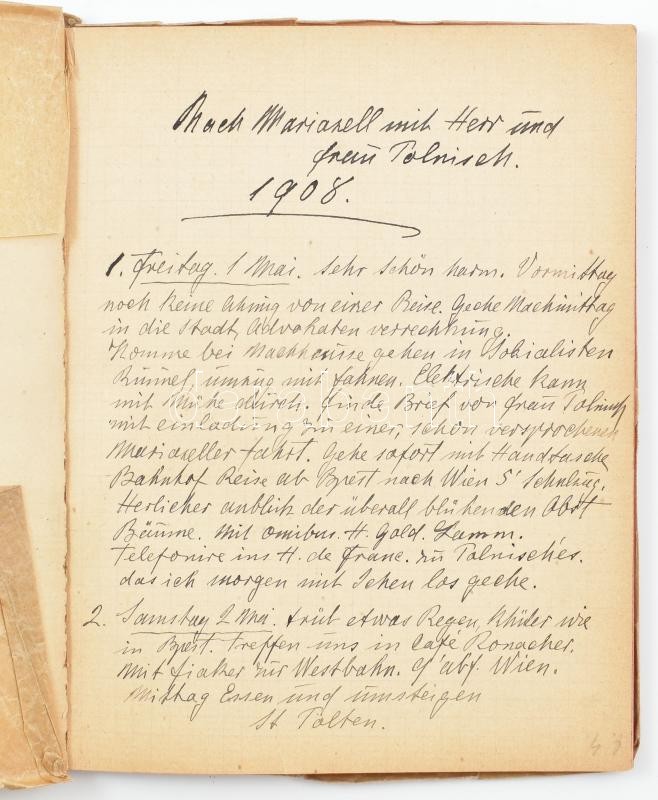 Nach Mariazell mit Herr und
Frau Tolnisch.
1908.
1. Freitag. 1 Mai. Sehr schön warm. Vormittag
noch keine Ahnug von einer Reise. Geche Nachmittag
in die Stadt, Advokaten verrechnung.
Komme bei Nachhause gehen in Sozialisten
Rummel, umzug mit Fahnen. Elektrische kann
mit Mühe durch. Finde Brief von Frau Tolnisch
mit einladung zu einer, schön versprochenen
Mariazeller fahrt. Gehe sofort mit Handtasche
Bahnhof Reise ab Bpest nach Wien 5'
Herlicher anblick der überall blühenden Obst
Bäume. Mit omibus. H. Gold. Lamm.
Telefonire ins H. de Franc. zu Tolnisch'es.
das ich morgen mit Ihnen los geche.
2. Samstag 2 Mai. Früh etwas Regen, Khüler wie
in Bpest. Treffen uns in Café Ronacher.
Mit fiaker zur Westbahn. 9' abf. Wien.
Mittag Essen und umsteigen
St Pölten.